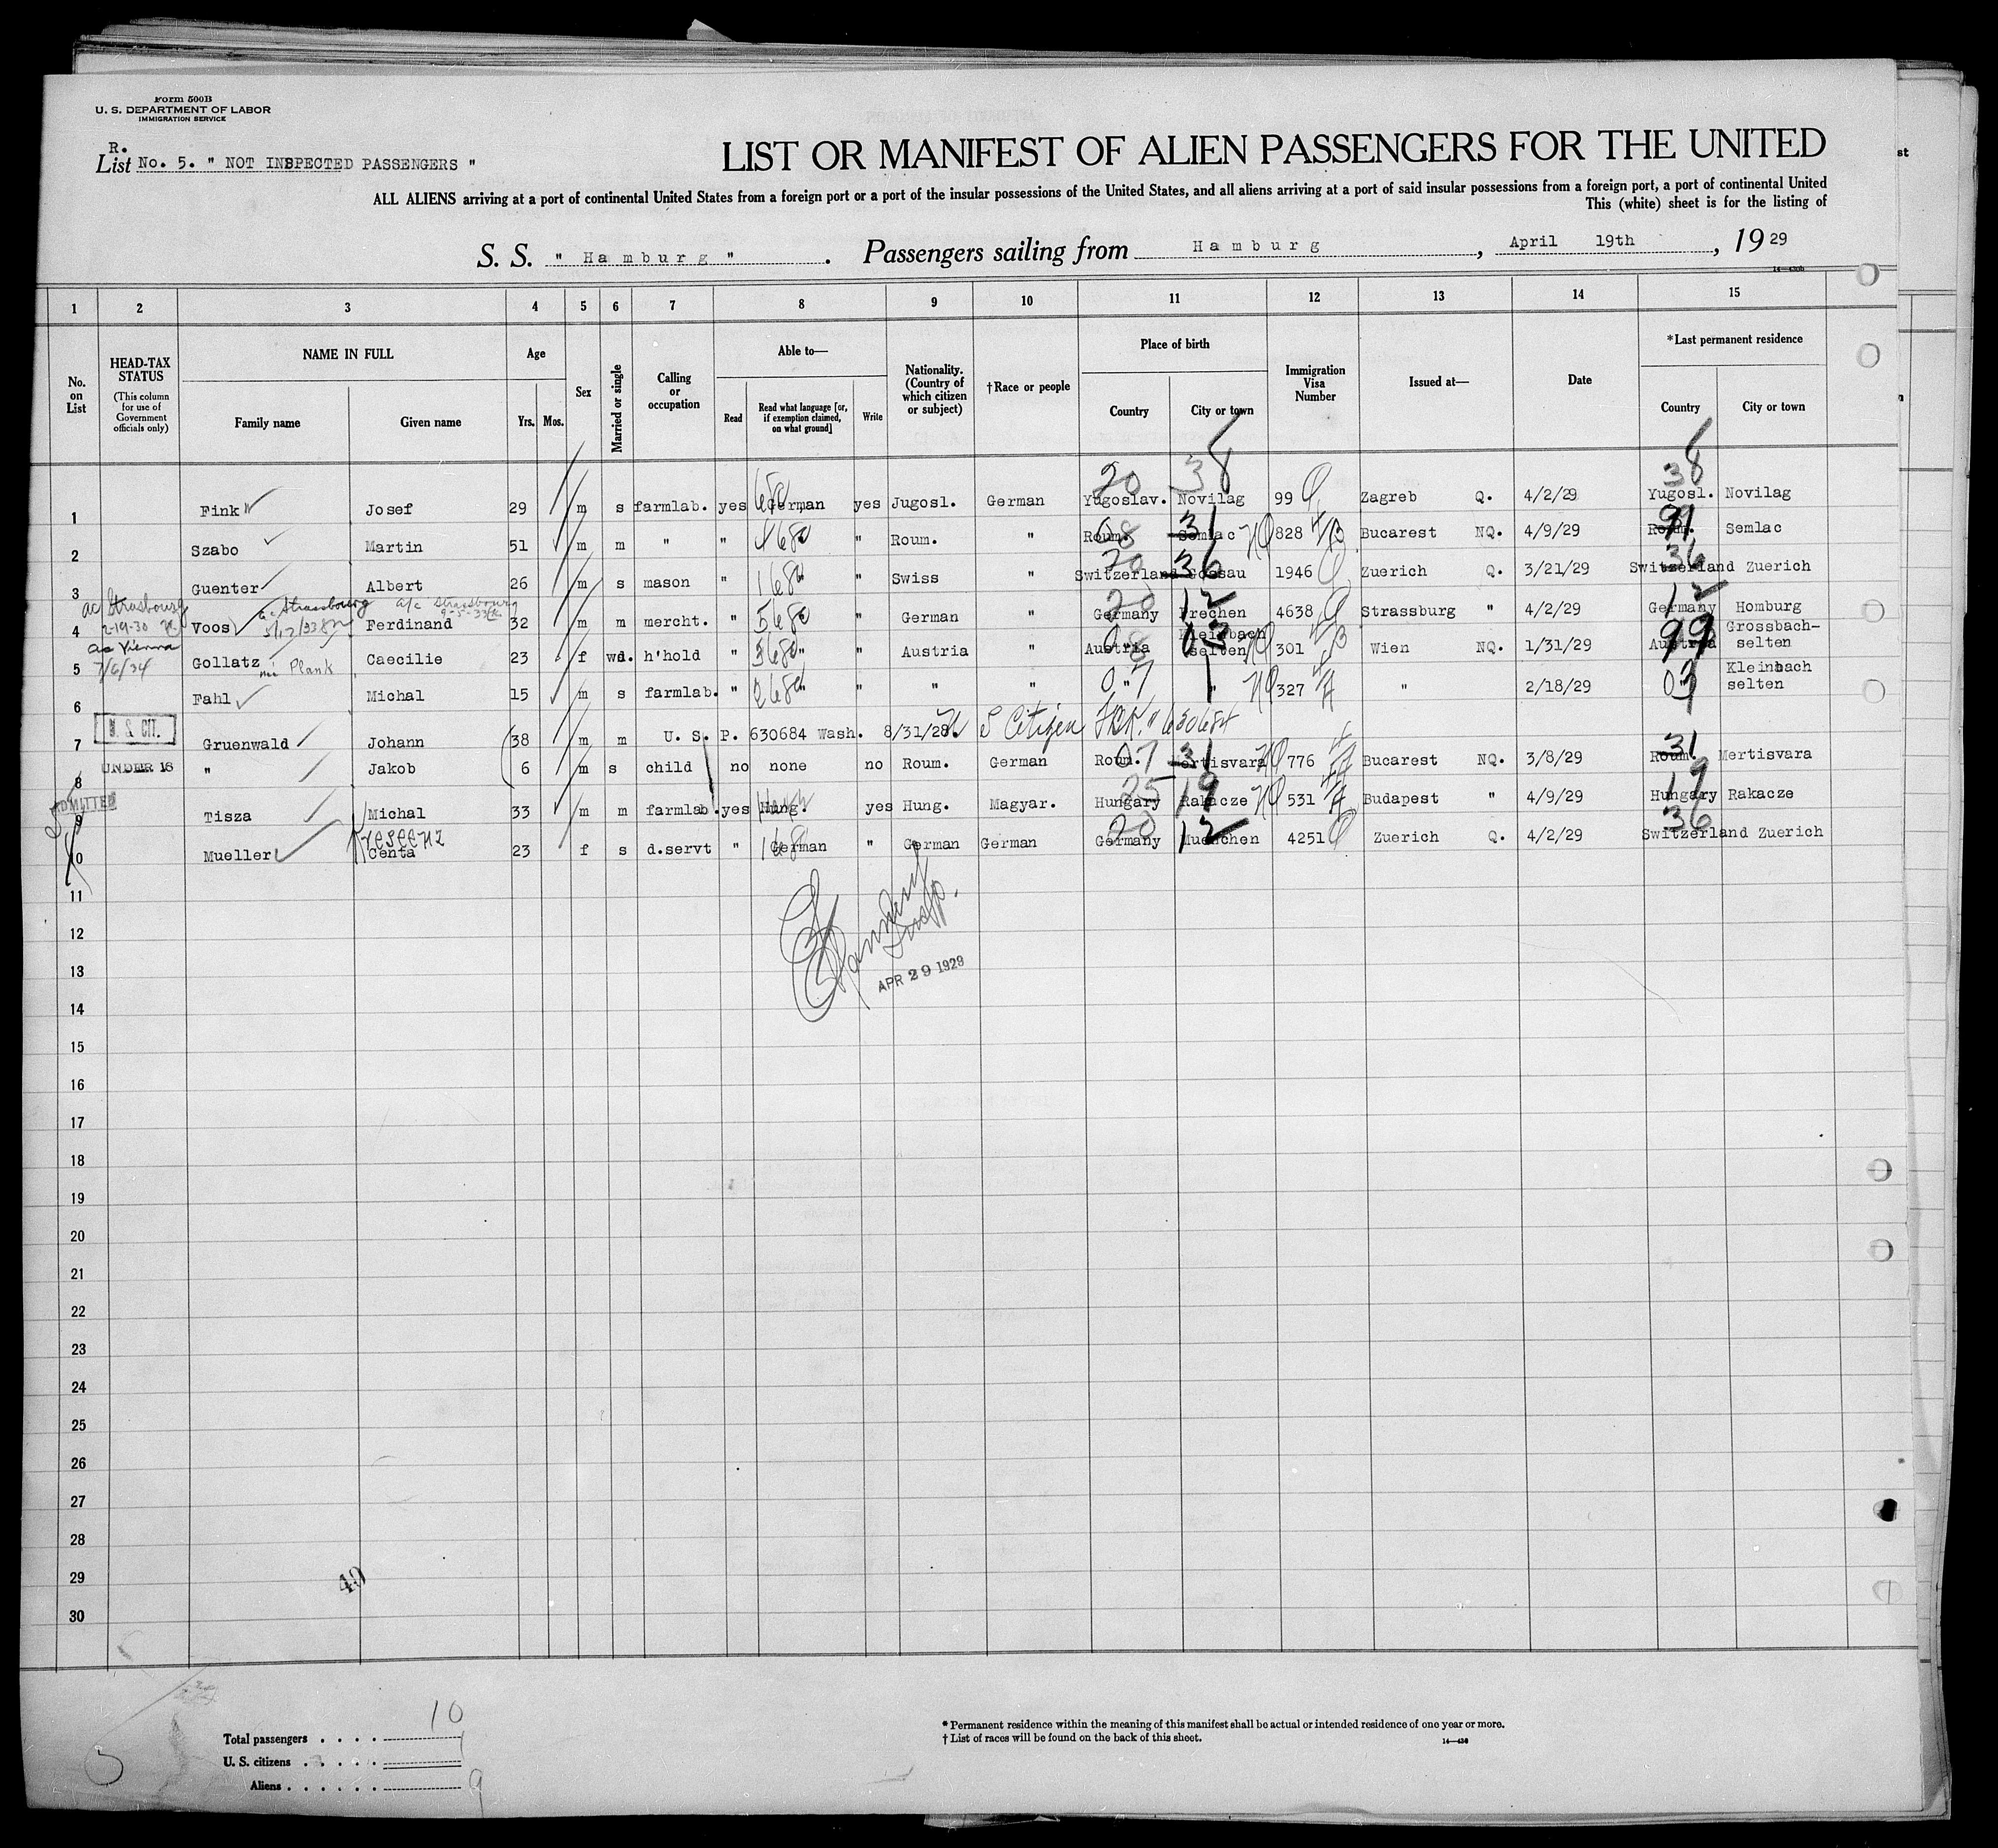 Form 500B
U. S. DEPARTMENT OF LABOR
IMMIGRATION SERVICE
R.
List No. 5. " NOT INSPECTED PASSENGERS "
LIST OR MANIFEST OF ALIEN PASSENGERS FOR THE UNITED
ALL ALIENS arriving at a port of continental United States from a foreign port or a port of the insular possessions of the United States, and all aliens arriving at a port of said insular possessions from a foreign port, a port of continental United
This (white) sheet is for the listing of
S. S. " Hamburg " . Passengers sailing from Hamburg , April 19th , 19 29
1 2 3 4 5 6 7 8 9 10 11 12 13 14 15
No. on List
HEAD-TAX STATUS (This column for use of Government officials only)
NAME IN FULL
Family name Given name
Age
Yrs. Mos.
Sex
Married or single
Calling or occupation
Able to—
Read Read what language [or, if exemption claimed, on what ground] Write
Nationality. (Country of which citizen or subject)
†Race or people
Place of birth
Country City or town
Immigration Visa Number
Issued at—
Date
*Last permanent residence
Country City or town
20 38 38
1 Fink Josef 29 m s farmlab. yes German yes Jugosl. German Yugoslav. Novilag 99 Q Zagreb Q. 4/2/29 Yugosl. Novilag
2 Szabo Martin 51 m m " " 468 " Roum. " Roum. Semlac NQ 828 Bucarest NQ. 4/9/29 Roum. Semlac
3 Guenter Albert 26 m s mason " 168 " Swiss " Switzerland Gossau 1946 Q Zuerich Q. 3/21/29 Switzerland Zuerich
ac Strasbourg 2-19-30 a/c Strassbourg a/c Strassbourg 9-5-33
4 Voos Ferdinand 32 m m mercht. " 568 " German " Germany Frechen 4638 Q Strassburg " 4/2/29 Germany Homburg
ac Vienna 7/6/34
5 Gollatz Plank Caecilie 23 f wd. h'hold " 368 " Austria " Austria Kleinbach selten NQ 301 Wien NQ. 1/31/29 Austria Grossbach-selten
6 Fahl Michal 15 m s farmlab. " 268 " " " 07 " " NQ 327 " 2/18/29 Kleinbach selten
U. S. CIT.
7 Gruenwald Johann 38 m m U. S. P. 630684 Wash. 8/31/28 U S Citizen 630684
UNDER 16
8 " Jakob 6 m s child no none no Roum. German Roum. Mertisvara NQ 776 Bucarest NQ. 3/8/29 Roum. Mertisvara
ADMITTED
9 Tisza Michal 33 m m farmlab. yes Hung. yes Hung. Magyar. Hungary Rakacze NQ 531 Budapest " 4/9/29 Hungary Rakacze
10 Mueller Centa 23 f s d.servt " German " German German Germany Muenchen 4251 Q Zuerich Q. 4/2/29 Switzerland Zuerich
11
Insp.
12
13
APR 29 1929
14
15
16
17
18
19
20
21
22
23
24
25
26
27
28
29
49
30
Total passengers . . . . 10
U. S. citizens . . . . . 1
Aliens . . . . . . 9
* Permanent residence within the meaning of this manifest shall be actual or intended residence of one year or more.
† List of races will be found on the back of this sheet.
14—430